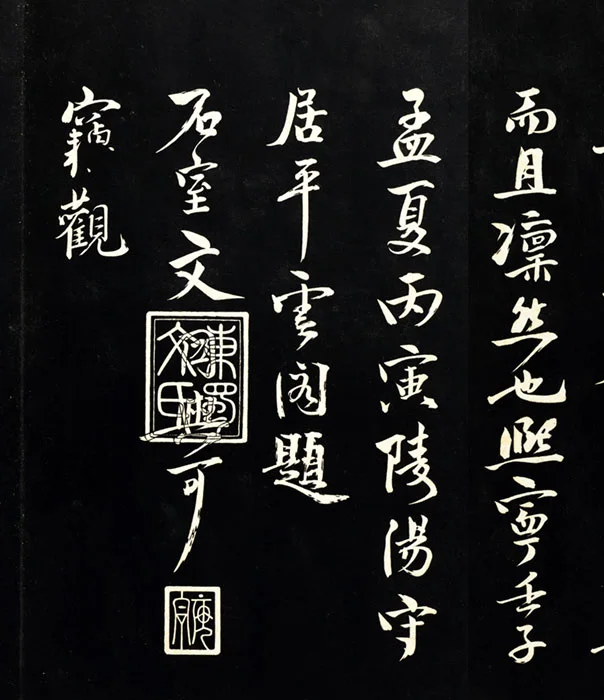 而且凜然也熙寧壬子
孟夏丙寅陵陽守
居平雲閣題
石室文與可
東蜀文氏
觀